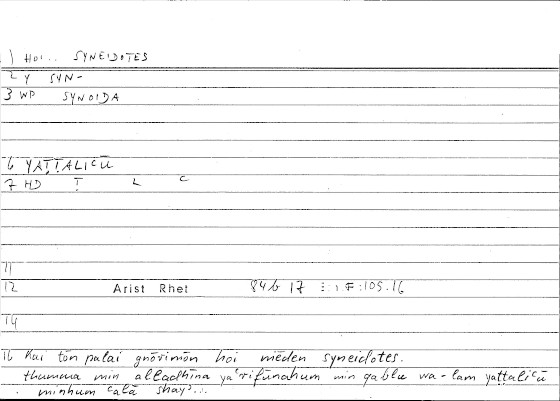 1) HOI... SYNEIDOTES
2 Y SYN-
3 WP SYNOIDA
6 YAṬṬALIʿŪ
7 HD Ṭ L ʿ
11
12 Arist Rhet 84b 17 : 109.16
14
16 kai tōn palai gnōrimōn hoi mēden syneidotes.
thumma min alladhīna yaʿrifūnahum min qablu wa-lam yaṭṭaliʿū
minhum ʿalā shayʾ...